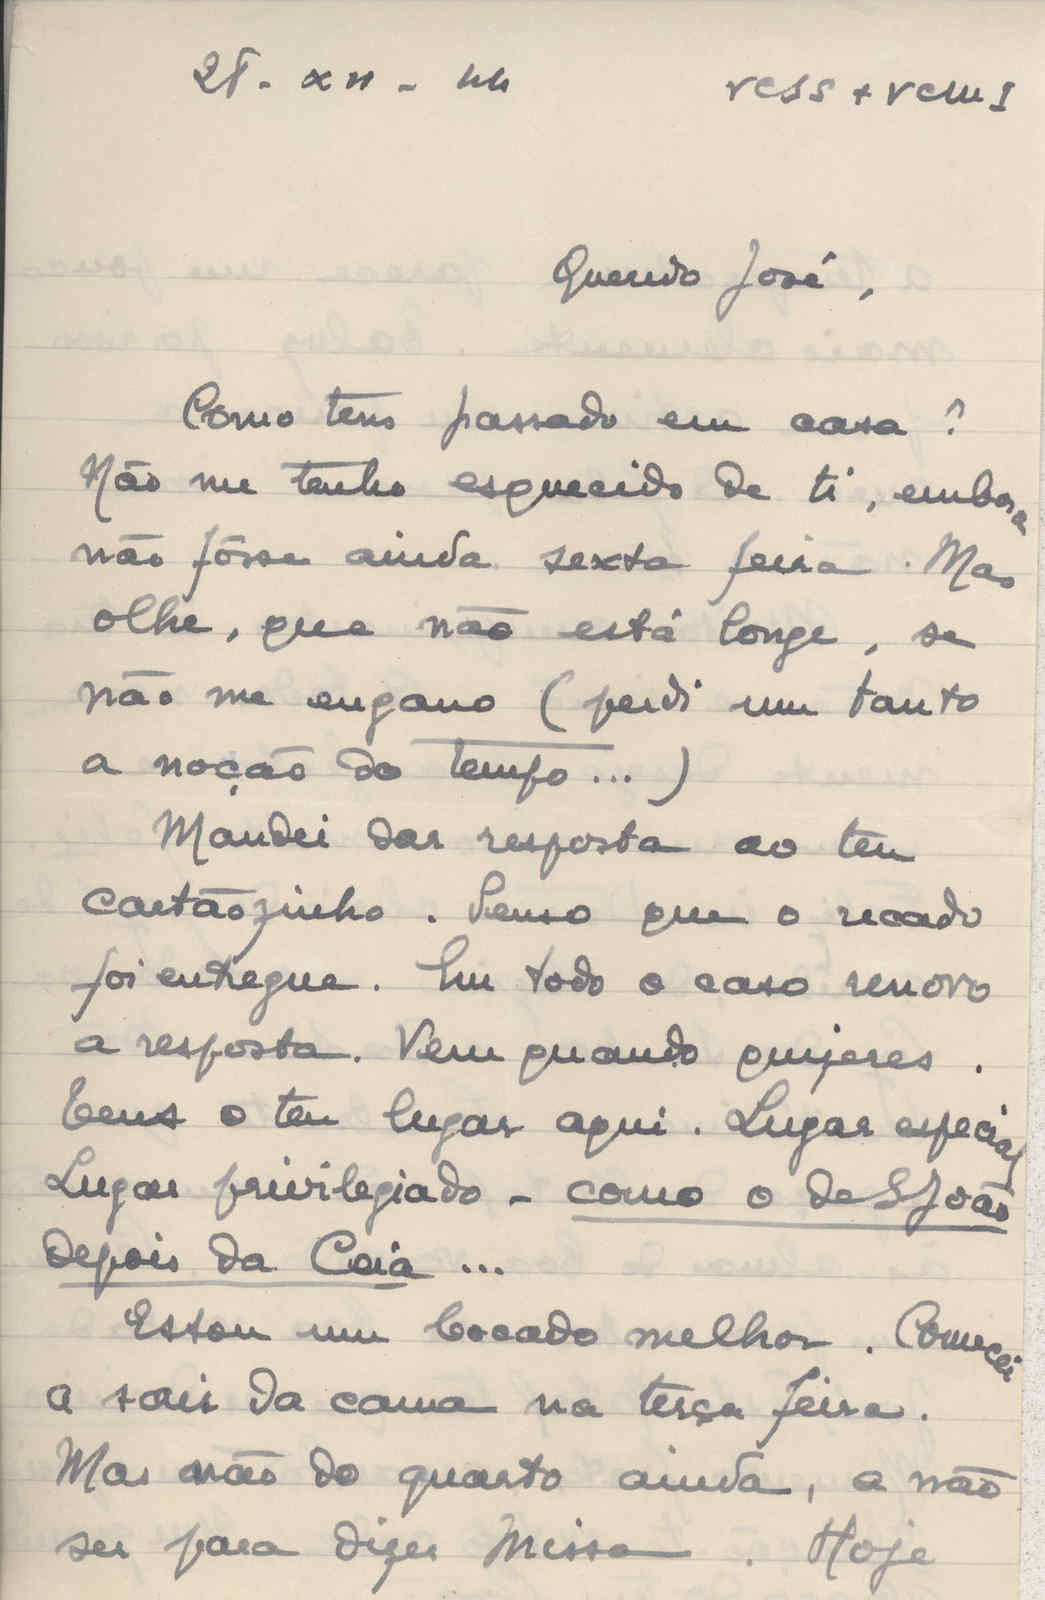 XII - 44
Querido José,
Como tens passado em casa?
Não me tenho esquecido de ti, embora
não fôsse ainda sexta feira. Mas
olhe, que não está longe, se
não me engano (perdi um tanto
a noção do tempo...)
Mandei dar resposta ao teu
cartãozinho. Penso que o recado
foi entregue. Em todo o caso renovo
a resposta. Vem quando quizeres.
Tens o teu lugar aqui. Lugar especial
Lugar privilegiado - como o de S João
depois da Ceia...
Estou um bocado melhor. Comecei
a sair da cama na terça feira.
Mas não do quarto ainda, a não
ser para dizer Missa. Hoje